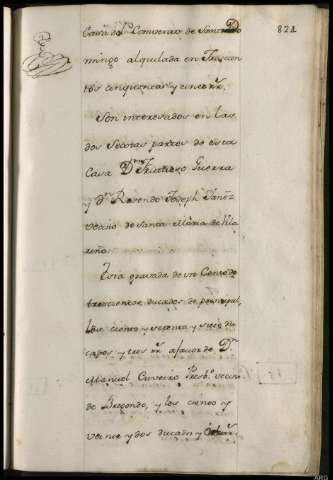 871
Casa del Convento de Santo Do
mingo alquilada en trescien
tos cinquenta y cinco rr.
Son interesados en las
dos Sextas partes de esta
Casa Dn. Guerra
y Dn. Rosendo Joseph Yañez
vecino de Santa Maria de
Esta gravada de un Censo de
trescientos ducados de principal,
los ciento y setenta y siete du
cados, y tres rr. afavor de Dn.
Manuel Presbo. vecino
de Bregondo, y los ciento y
veinte y dos ducados, y ocho rr.
ARG